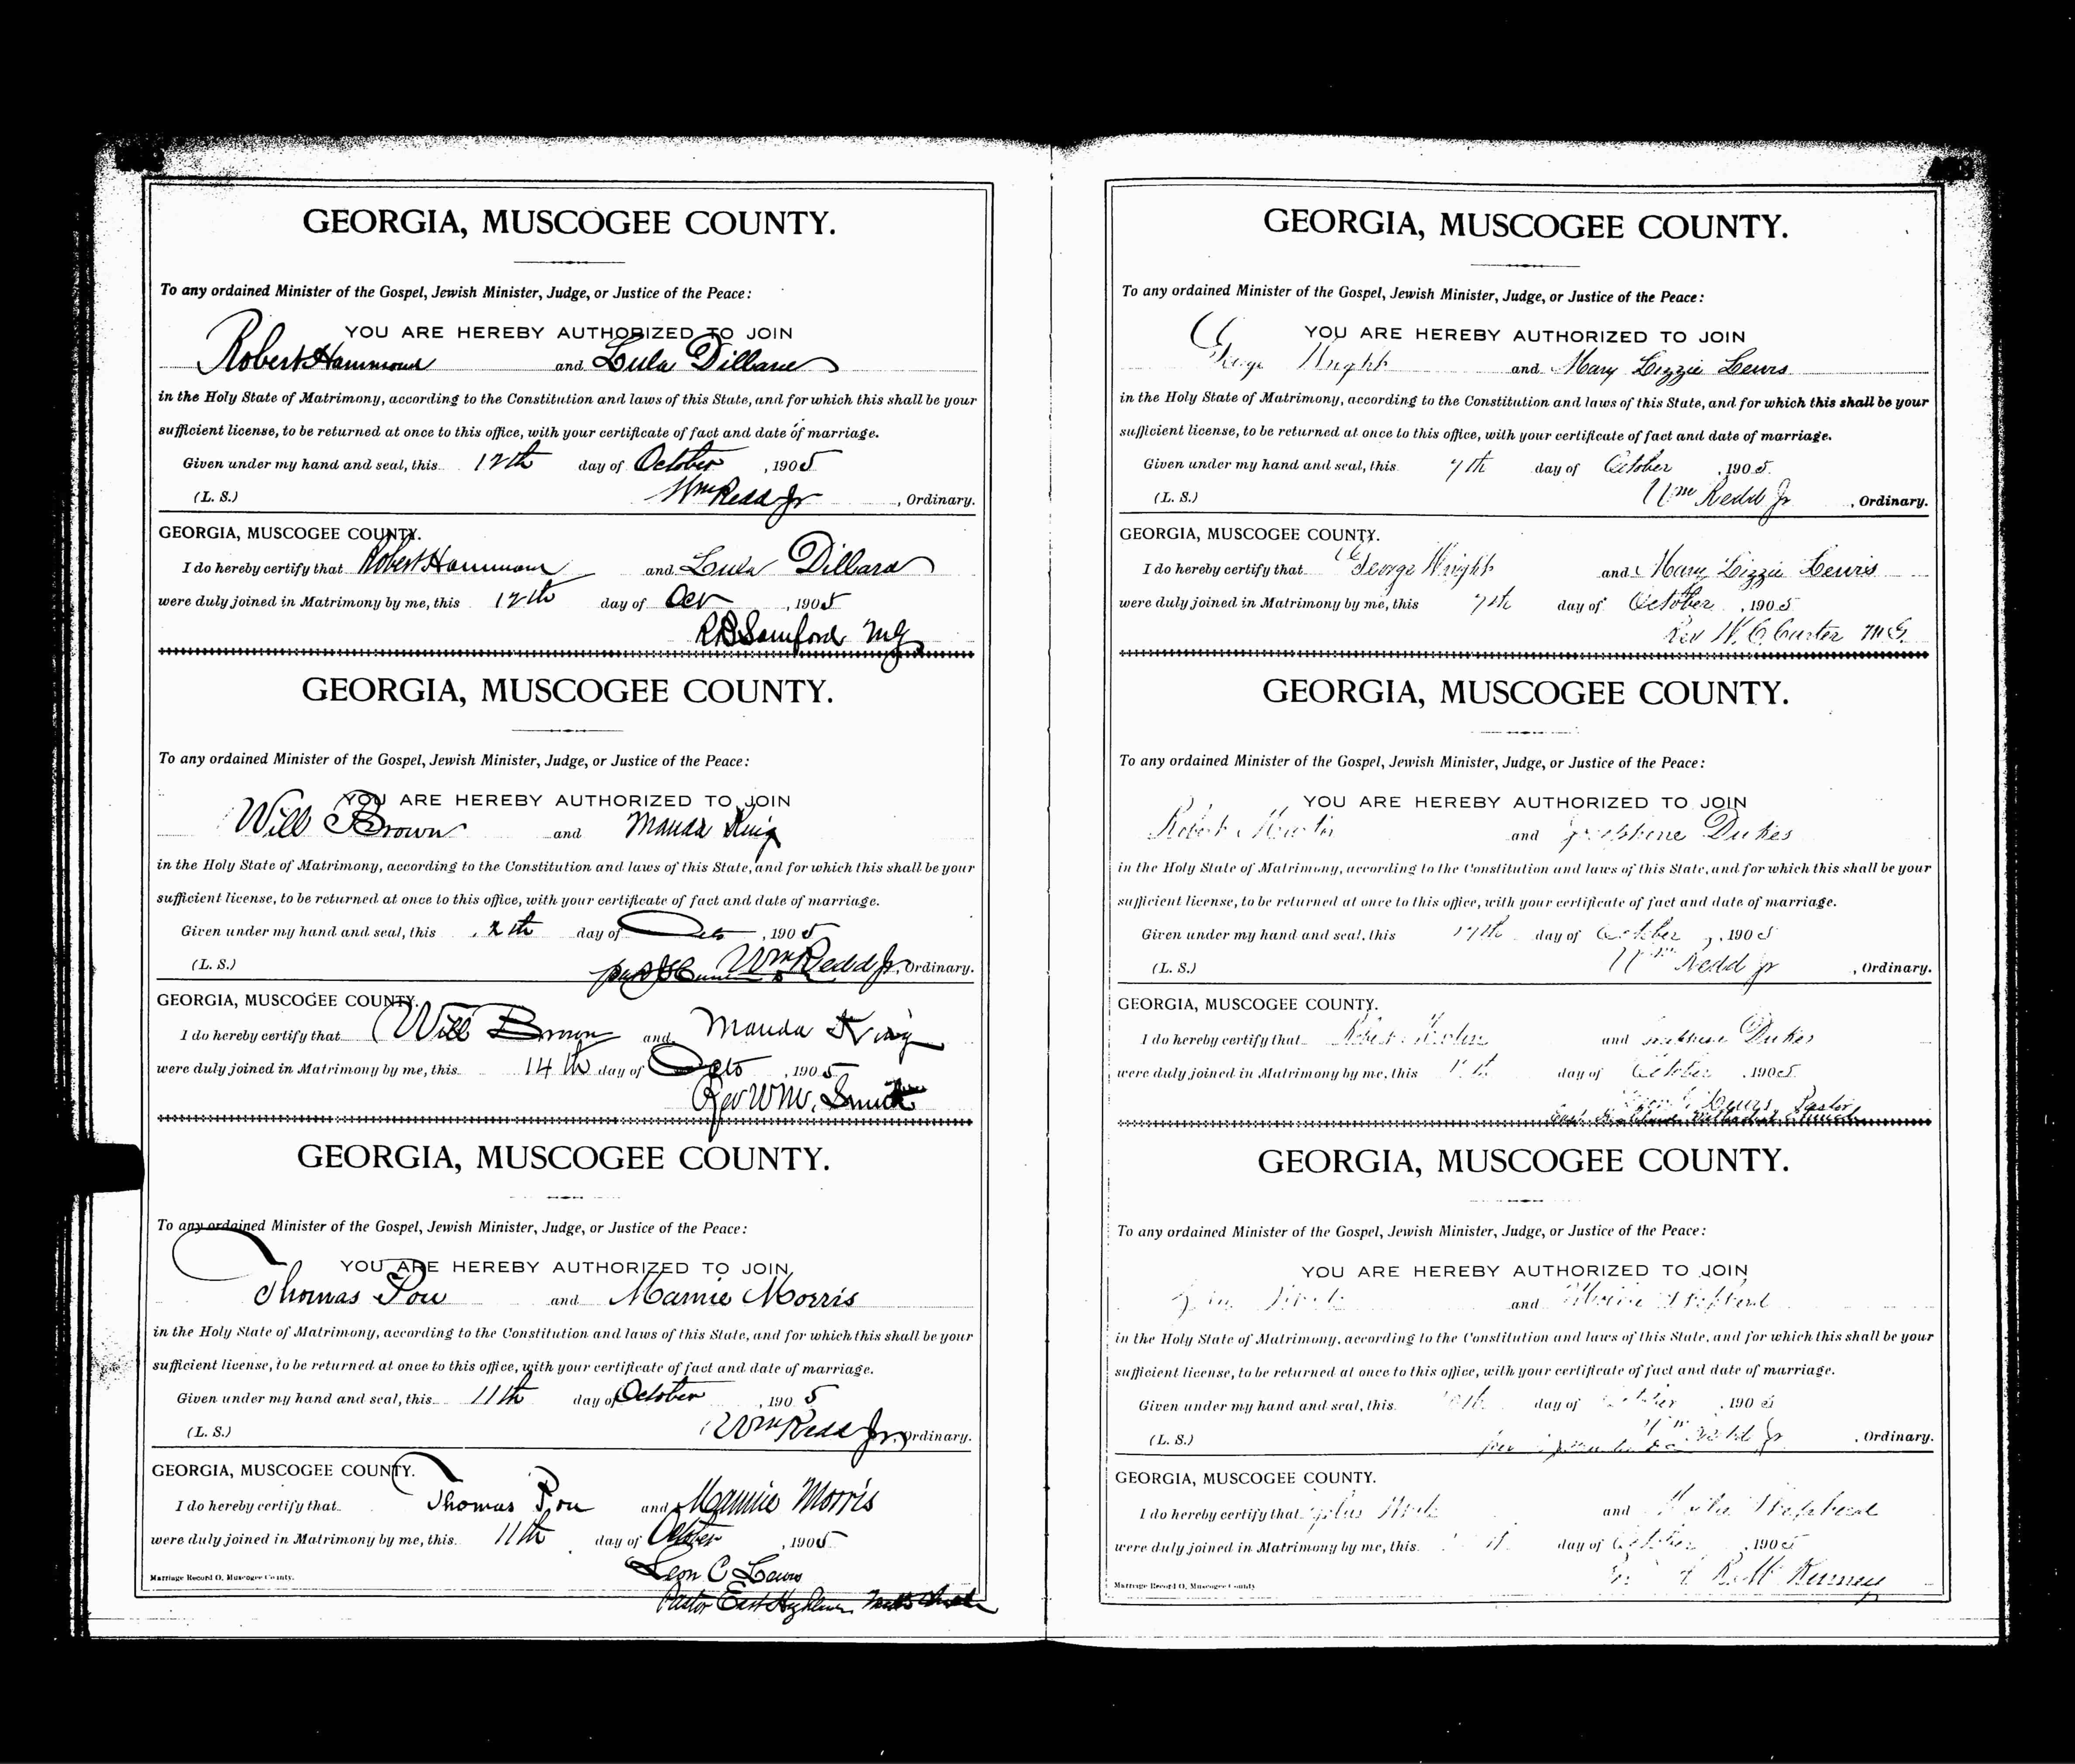 GEORGIA, MUSCOGEE COUNTY.
To any ordained Minister of the Gospel, Jewish Minister, Judge, or Justice of the Peace:
YOU ARE HEREBY AUTHORIZED TO JOIN
Robert Hammond and Lula Dillard
in the Holy State of Matrimony, according to the Constitution and laws of this State, and for which this shall be your
sufficient license, to be returned at once to this office, with your certificate of fact and date of marriage.
Given under my hand and seal, this 12th day of October, 1905
(L. S.) Wm Redd Jr, Ordinary.
GEORGIA, MUSCOGEE COUNTY.
I do hereby certify that Robert Hammond and Lula Dillard
were duly joined in Matrimony by me, this 12th day of Oct, 1905
R B Samford MG
GEORGIA, MUSCOGEE COUNTY.
To any ordained Minister of the Gospel, Jewish Minister, Judge, or Justice of the Peace:
YOU ARE HEREBY AUTHORIZED TO JOIN
Will Brown and Manda King
in the Holy State of Matrimony, according to the Constitution and laws of this State, and for which this shall be your
sufficient license, to be returned at once to this office, with your certificate of fact and date of marriage.
Given under my hand and seal, this day of Octo, 1905
(L. S.) Wm Redd Jr, Ordinary.
GEORGIA, MUSCOGEE COUNTY.
I do hereby certify that Will Brown and Manda King
were duly joined in Matrimony by me, this 14th day of Octo, 1905
Rev W M. Smith
GEORGIA, MUSCOGEE COUNTY.
To any ordained Minister of the Gospel, Jewish Minister, Judge, or Justice of the Peace:
YOU ARE HEREBY AUTHORIZED TO JOIN
Thomas Pou and Mamie Morris
in the Holy State of Matrimony, according to the Constitution and laws of this State, and for which this shall be your
sufficient license, to be returned at once to this office, with your certificate of fact and date of marriage.
Given under my hand and seal, this 11th day of October, 1905
(L. S.) Wm Redd Jr, Ordinary.
GEORGIA, MUSCOGEE COUNTY.
I do hereby certify that Thomas Pou and Mamie Morris
were duly joined in Matrimony by me, this 11th day of October, 1905
Leon C Lewis
Marriage Record O, Muscogee County.
Pastor East
GEORGIA, MUSCOGEE COUNTY.
To any ordained Minister of the Gospel, Jewish Minister, Judge, or Justice of the Peace:
YOU ARE HEREBY AUTHORIZED TO JOIN
George Wright and Mary Lizzie Lewis
in the Holy State of Matrimony, according to the Constitution and laws of this State, and for which this shall be your
sufficient license, to be returned at once to this office, with your certificate of fact and date of marriage.
Given under my hand and seal, this 7th day of October, 1905.
(L. S.) Wm Redd Jr, Ordinary.
GEORGIA, MUSCOGEE COUNTY.
I do hereby certify that George Wright and Mary Lizzie Lewis
were duly joined in Matrimony by me, this 7th day of October, 1905
Rev W. C. Carter M G.
GEORGIA, MUSCOGEE COUNTY.
To any ordained Minister of the Gospel, Jewish Minister, Judge, or Justice of the Peace:
YOU ARE HEREBY AUTHORIZED TO JOIN
Robert and Josephine Dukes
in the Holy State of Matrimony, according to the Constitution and laws of this State, and for which this shall be your
sufficient license, to be returned at once to this office, with your certificate of fact and date of marriage.
Given under my hand and seal, this 17th day of October, 1905
(L. S.) Wm Redd Jr, Ordinary.
GEORGIA, MUSCOGEE COUNTY.
I do hereby certify that Robert and Josephine Dukes
were duly joined in Matrimony by me, this day of October, 1905
Lewis, Pastor
East Methodist Church
GEORGIA, MUSCOGEE COUNTY.
To any ordained Minister of the Gospel, Jewish Minister, Judge, or Justice of the Peace:
YOU ARE HEREBY AUTHORIZED TO JOIN
and
in the Holy State of Matrimony, according to the Constitution and laws of this State, and for which this shall be your
sufficient license, to be returned at once to this office, with your certificate of fact and date of marriage.
Given under my hand and seal, this day of October, 1905
(L. S.) Wm Redd Jr, Ordinary.
GEORGIA, MUSCOGEE COUNTY.
I do hereby certify that and Shepherd
were duly joined in Matrimony by me, this day of October, 1905
Marriage Record O, Muscogee County